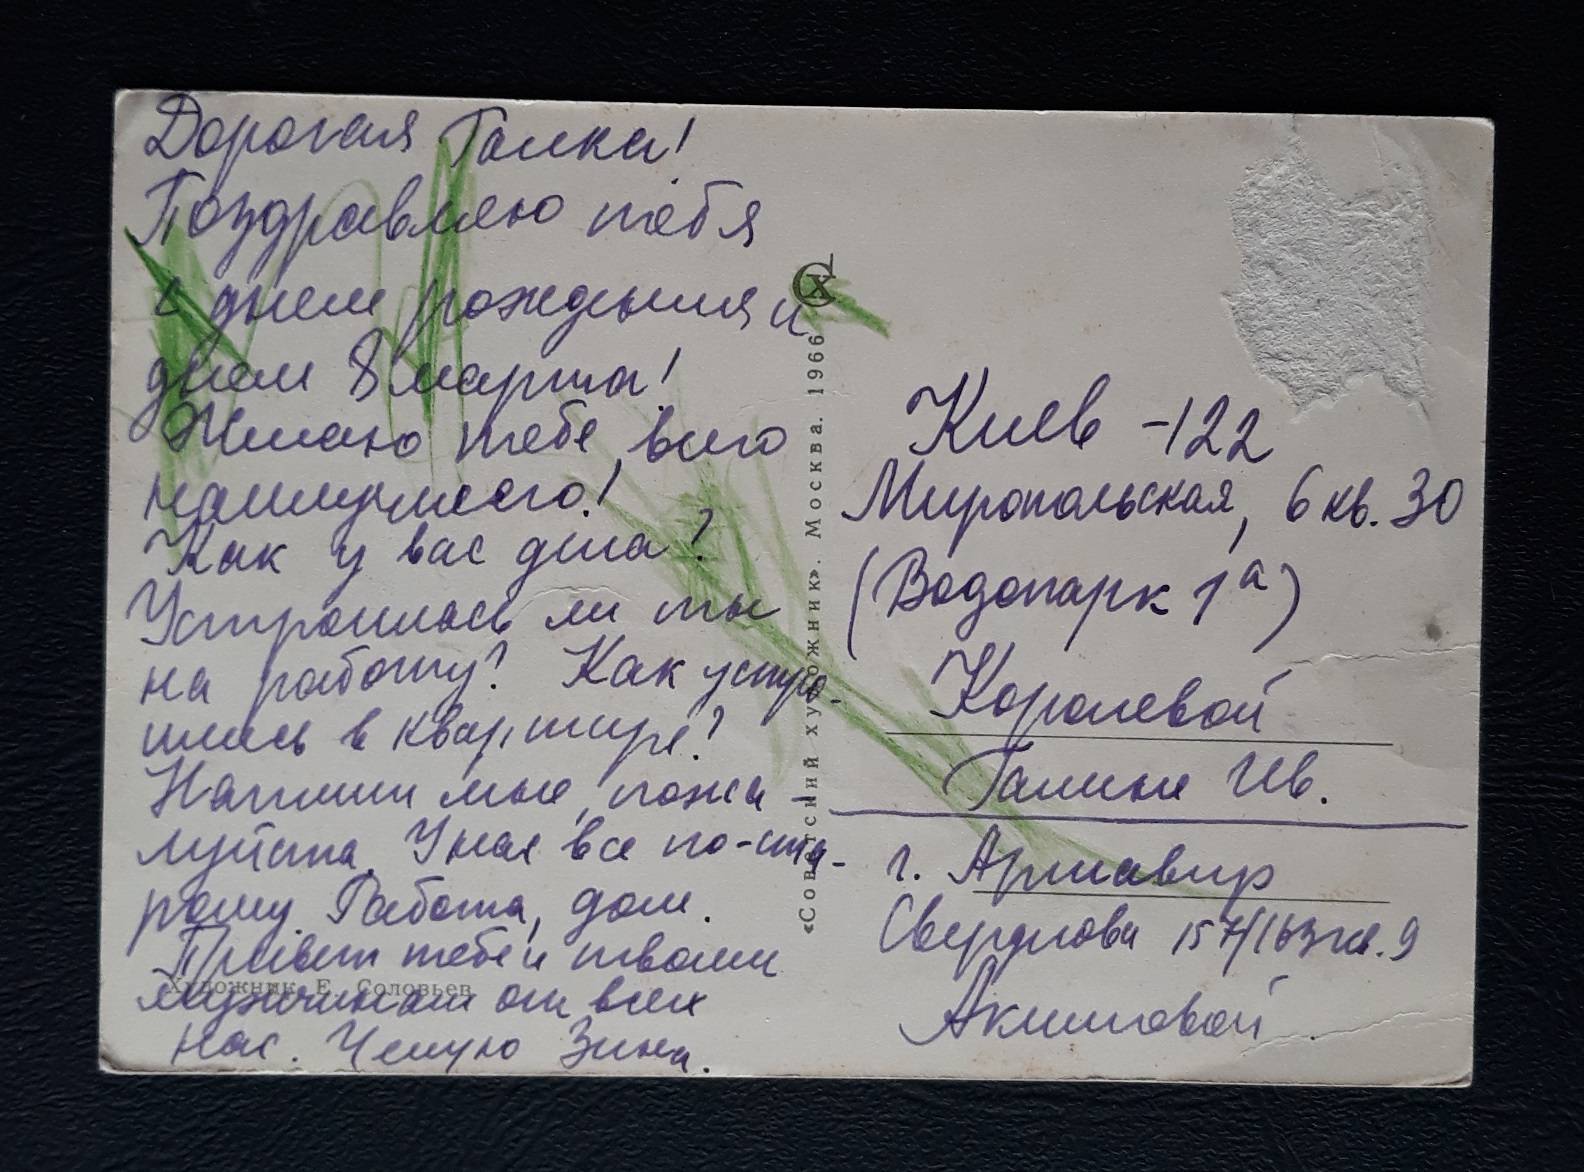 Дорогая Галка!
Поздравляю тебя
с днем рождения и
днем 8 марта!
Желаю тебе всего
наилучшего!
Как у вас дела?
Устроилась ли ты
на работу? Как устро-
ились в квартире?
Напиши мне, пожа-
луйста. У нас все по-ста-
рому. Работа, дом.
Привет тебе и твоим
мужчинам от всех
нас. Целую Зина.
Художник Е. Соловьев
СХ
«Советский художник». Москва. 1966
Киев -122
Миропольская, 6 кв. 30
(Водопарк 1а)
Королевой
Галине Ив.
г. Армавир
Свердлова 157/163 кв. 9
Акимовой